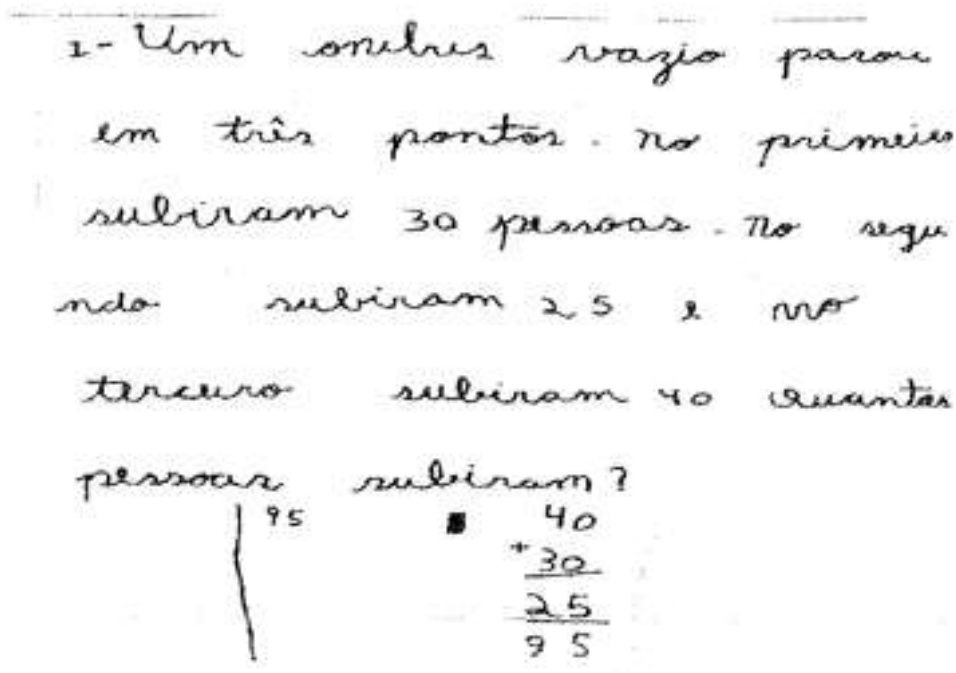 1- Um onibus vazio parou
em três pontos. No primeiro
subiram 30 pessoas. No segu
ndo subiram 25 e no
terceiro subiram 40 Quantas
pessoas subiram?
95 40
+30
25
95